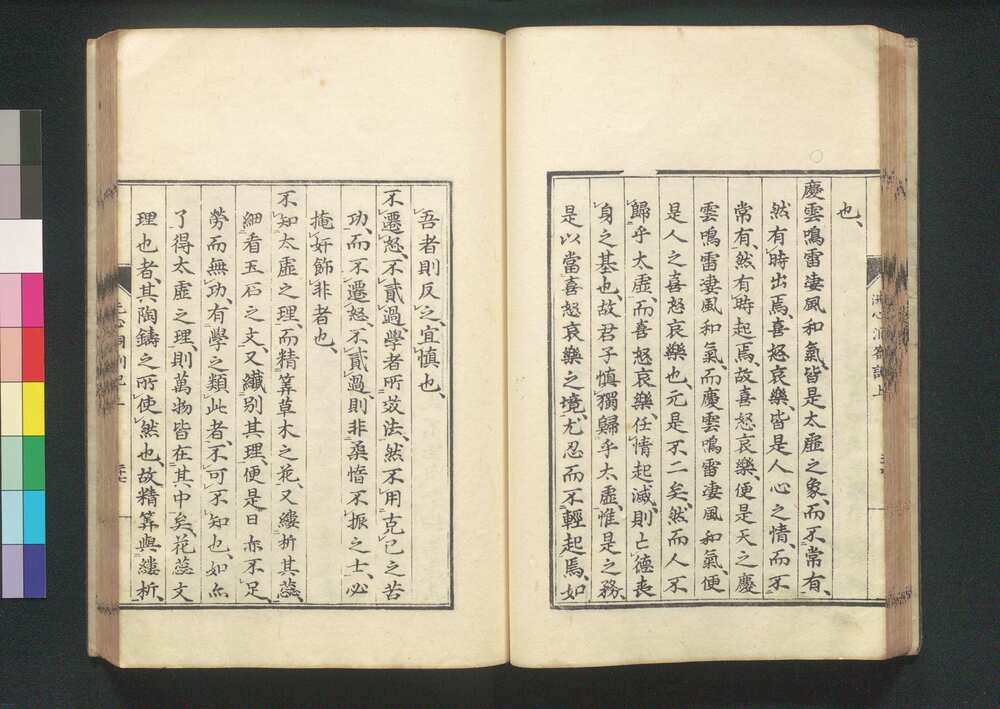 也、
慶雲鳴雷凄風和氣、皆是太虛之象、而不常有、
然有時出焉、喜怒哀樂、皆是人心之情、而不
常有、然有時起焉、故喜怒哀樂、便是天之慶
雲鳴雷凄風和氣、而慶雲鳴雷凄風和氣、便
是人之喜怒哀樂也、元是不二矣、然而人不
歸乎太虛、而喜怒哀樂、任情起滅、則亡德喪
身之基也、故君子慎獨歸乎太虛、惟是之務、
是以當喜怒哀樂之境、尤忍而不輕起焉、如
吾者則反之、宜慎也、
不遷怒、不貳過、學者所效法、然不用克己之苦
功、而不遷怒、不貳過、則非柔惰不振之士、必
掩奸飾非者也、
不知太虛之理、而精算草木之花、又縷析其蕊、
細看玉石之文、又纖別其理、便是日亦不足、
勞而無功、有學之類此者、不可不知也、如
了得太虛之理、則萬物皆在其中矣、花蕊文
理也者、其陶鑄之所使然也、故精算與縷析、
洗心洞劄記上